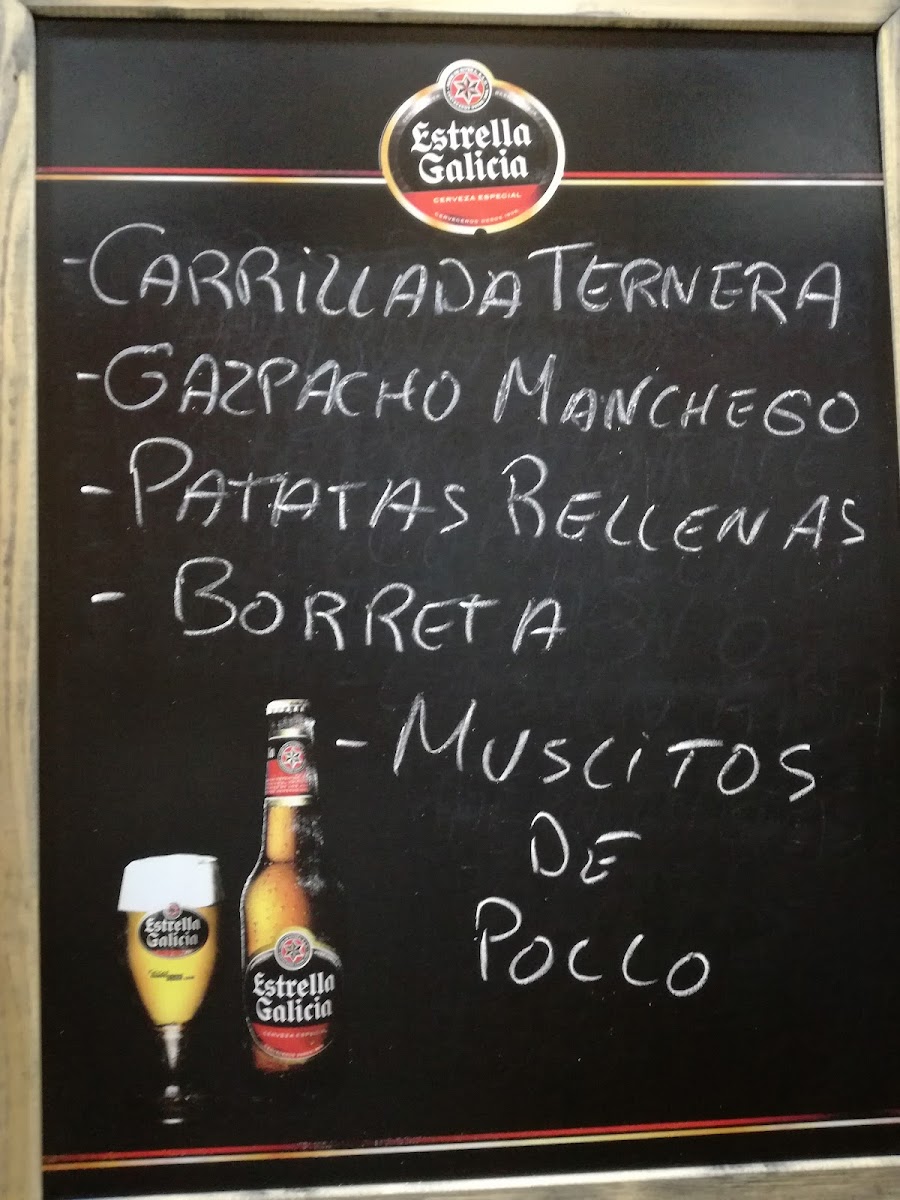 Estrella
Galicia
CERVEZA ESPECIAL
CERVECEROS DESDE 1906
-CARRILLADA TERNERA
-GAZPACHO MANCHEGO
-PATATAS RELLENAS
- BORRETA
- MUSLITOS
DE
POLLO
Estrella
Galicia
Estrella
Galicia
CERVEZA ESPECIAL